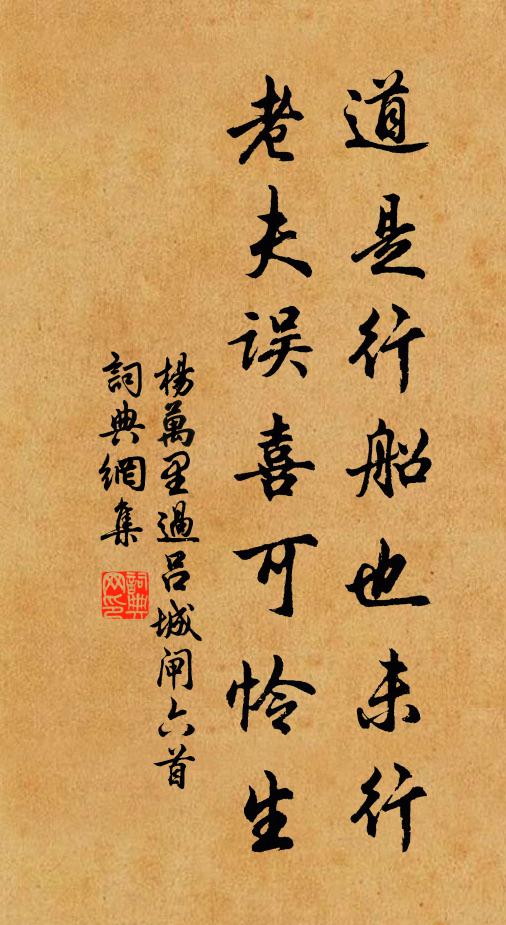 道是行船也未行
老夫误喜可怜生
楊萬里過吕城闸六首
詞典網集
詞典网印